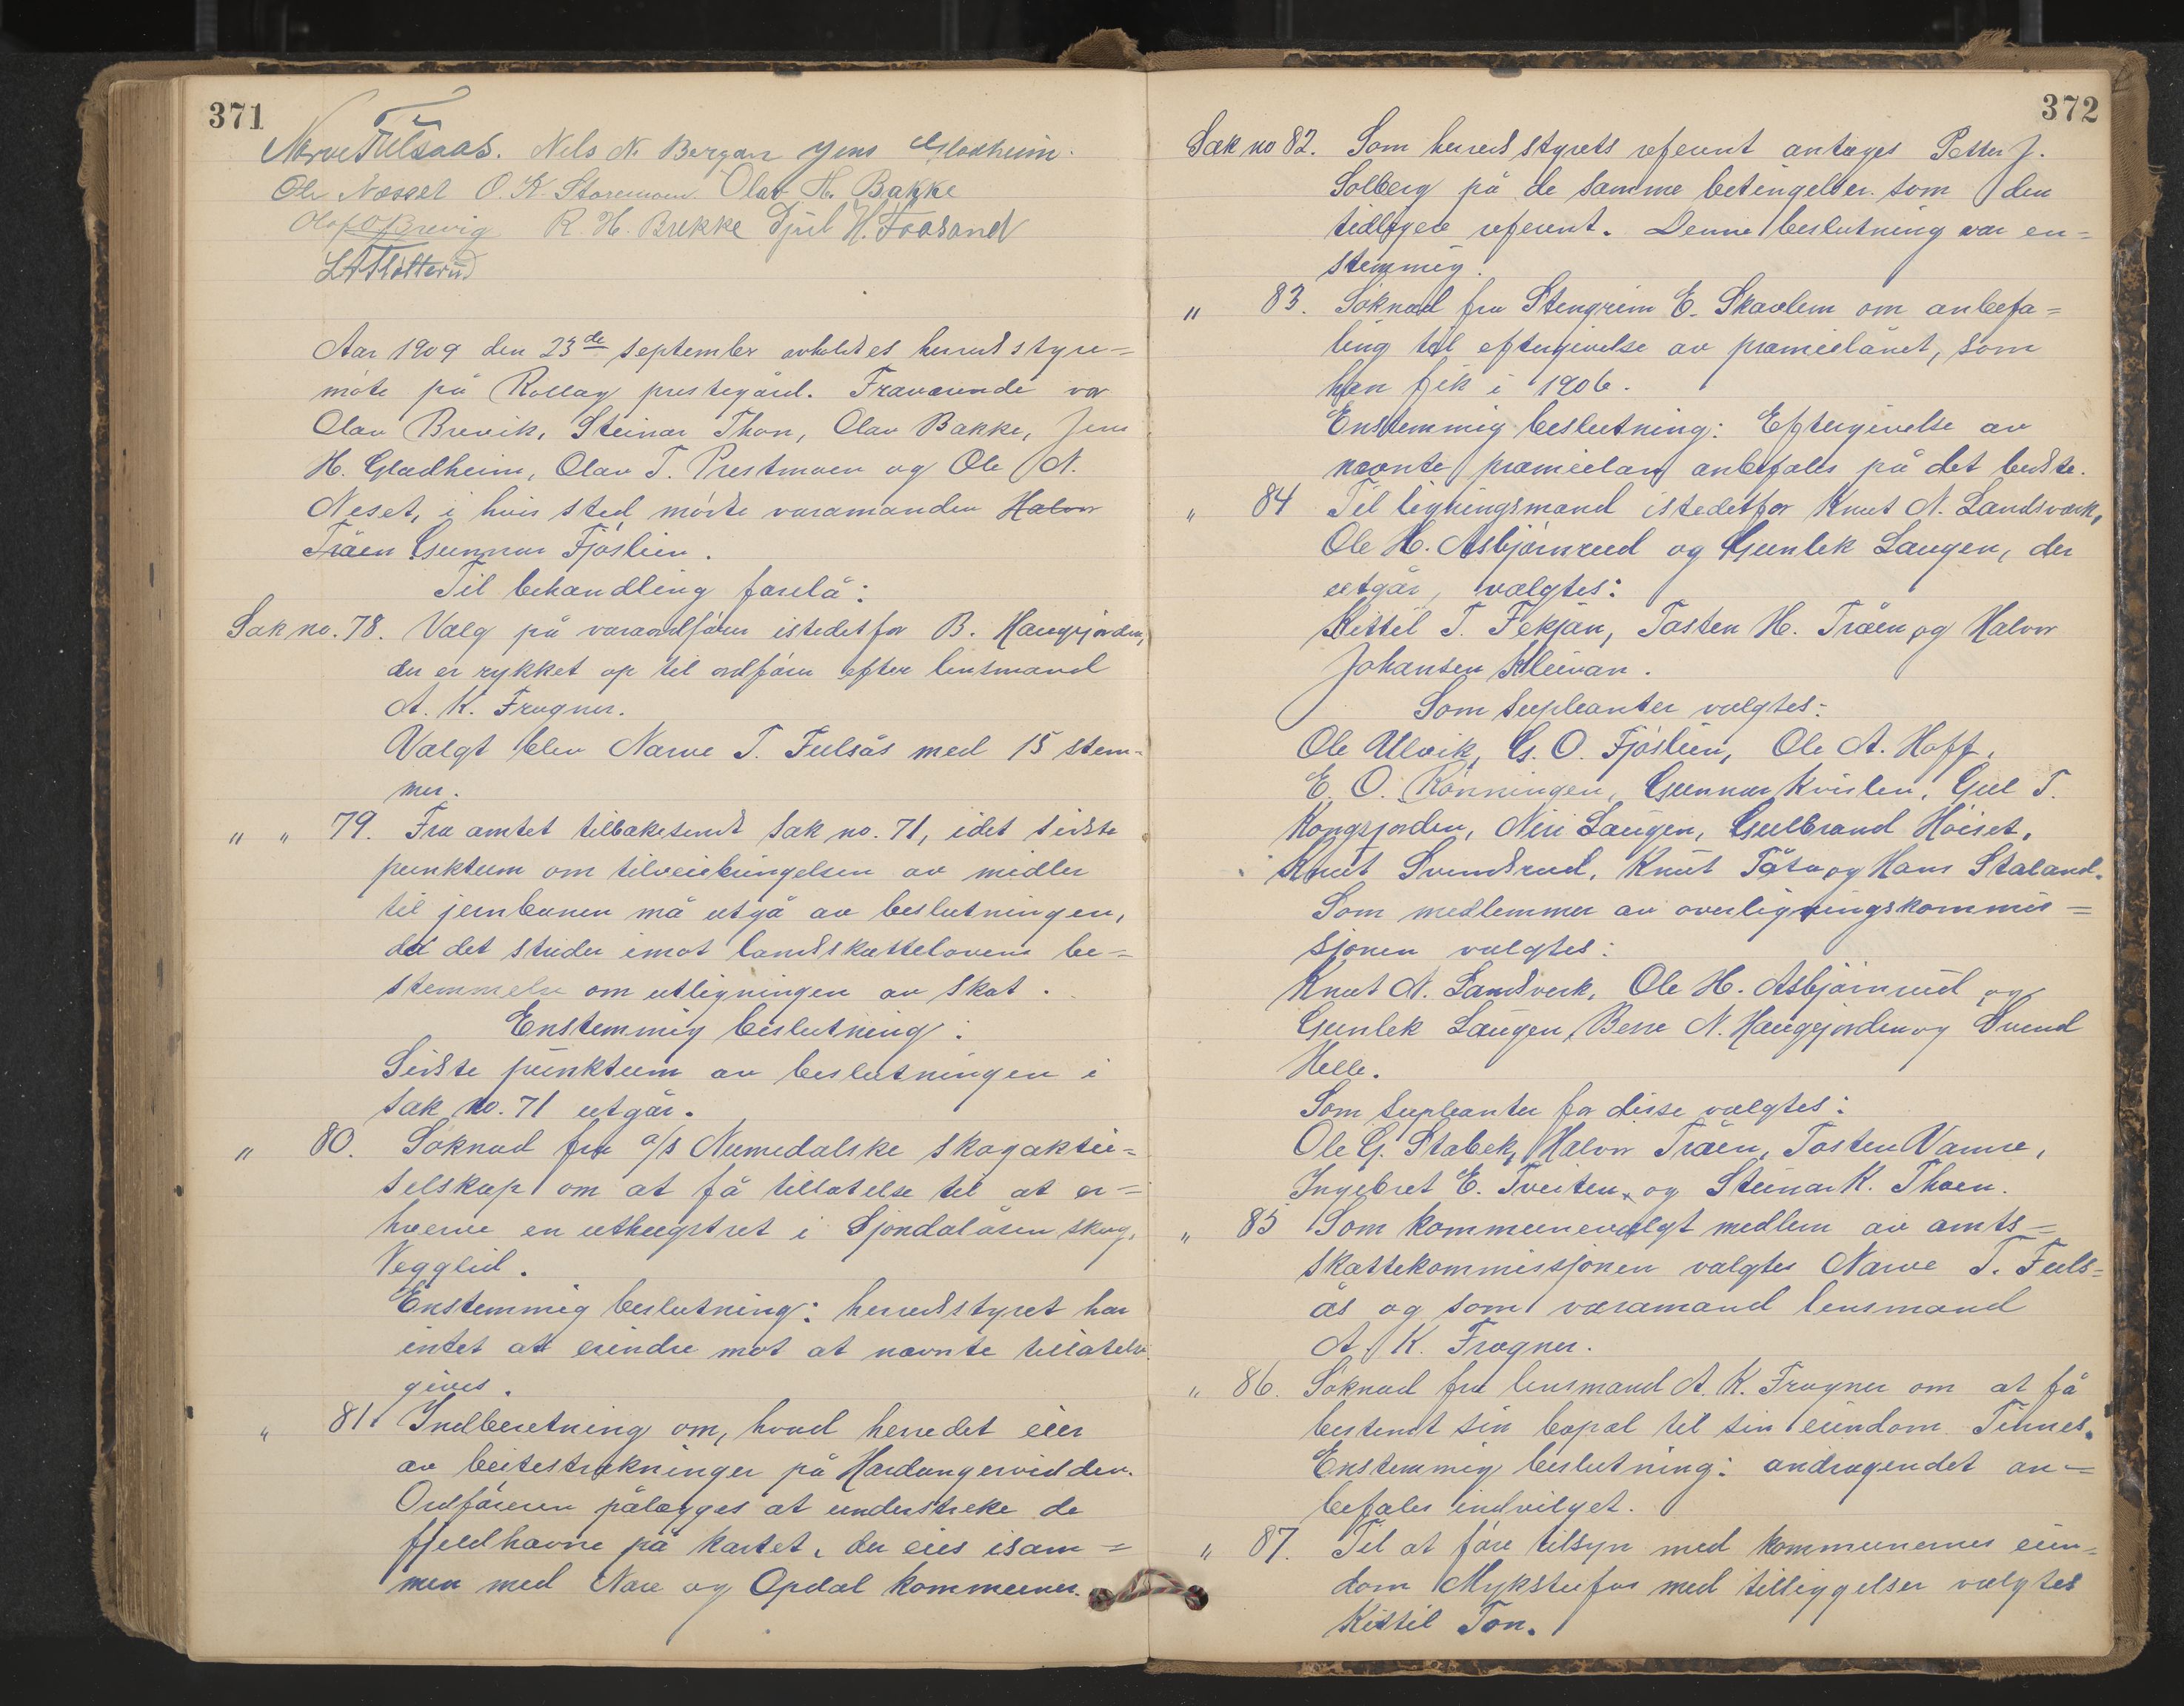 371
Narve Fulsaas. Nils N. Bergan Jens Gladheim.
Ole Næsset O. K. Staremoen Olav H. Bakke
Olaf O Brevig. R. H. Brekke Djul H. Fossand
Aar 1909 den 23de september avholdtes herredsstyre=
møte på Rollag prestegård. Fraværende var
Olav Brevik, Steinar Thon, Olav Bakke, Jens
H. Gladheim, Olav T. Prestmoen og Ole N.
Neset, i hvis sted møtte varamanden Halvor
Tråen Gunnar Fjøslien.
Til behandling forelå:
Sak no. 78. Valg på varaordfører istedetfor B. Haugejorden,
der er rykket op til ordfører efter lensmand
A. K. Frogner.
Valgt blev Narve T. Fulsås med 15 stem=
mer.
" " 79. Fra amtet tilbakesendt sak no. 71, idet sidste
punktum om tilveiebringelsen av midler
til jernbanen må utgå av beslutningen,
da det strider imot landsskattelovens be=
stemmelse om utligningen av skat.
Enstemmig beslutning:
Sidste punktum av beslutningen i
sak no. 71 utgår.
" 80. Søknad fra a/s Numedalske skogaktie=
selskap om at få tillatelse til at er=
hverve en uthugstret i Sjondalåsen skog,
Vegglid.
Enstemmig beslutning: herredsstyret har
intet at erindre mot at nævnte tillatelse
gives.
" 81. Indberetning om, hvad herredet eier
av beitestrækninger på Hardangervidden.
Ordføreren pålægges at understreke de
fjeldhavne på kartet, der eies isam=
men med Nore og Opdal kommuner.
372
Sak no 82. Som herredsstyrets referent antages Petter J.
Solberg på de samme betingelser som den
tidligere referent. Denne beslutning var en=
stemmig.
" 83. Søknad fra Stengrim E. Skavlem om anbefa=
ling til eftergivelse av præmielånet, som
han fik i 1906.
Enstemmig beslutning: Eftergivelse av
nævnte præmielån anbefales på det bedste.
" 84 Til ligningsmænd istedetfor Knut N. Landsverk,
Ole H. Asbjørnrud og Gunlek Laugen, der
utgår, valgtes:
Kittil T. Fekjan, Tosten H. Tråen og Halvor
Johansen Kleivan.
Som supleanter valgtes:
Ole Ulvik, G. O. Fjøslien, Ole A. Hoff,
E. O. Rønningen, Gunnar Kvislen, Gul T.
Kongsjorden, Niri Laugen, Gulbrand Høiset,
Knut Svendsrud, Knut Tåtø og Hans Staland.
Som medlemmer av overligningskommis=
sjonen valgtes:
Knut N. Landsverk, Ole H. Asbjørnrud og
Gunlek Laugen, Berre N. Haugejorden og Svend
Helle.
Som supleanter for disse valgtes:
Ole G. Stabek, Halvor Tråen, Tosten Vanne,
Ingebret E. Tveiten, og Steinar K. Thoen.
" 85 Som kommunevalgt medlem av amts=
skattekommissjonen valgtes Narve T. Fuls=
ås og som varamand lensmand
A. K. Frogner.
" 86. Søknad fra lensmand A. K. Frogner om at få
bestemt sin bopæl til sin eiendom Tinnes.
Enstemmig beslutning: andragendet an=
befales indvilget.
" 87. Til at føre tilsyn med kommunernes eien=
dom Mykstufos med tilliggelser valgtes
Kittil Ton.